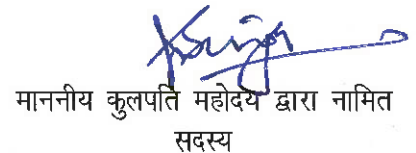 माननीय कुलपति महोदय द्वारा नामित
सदस्य